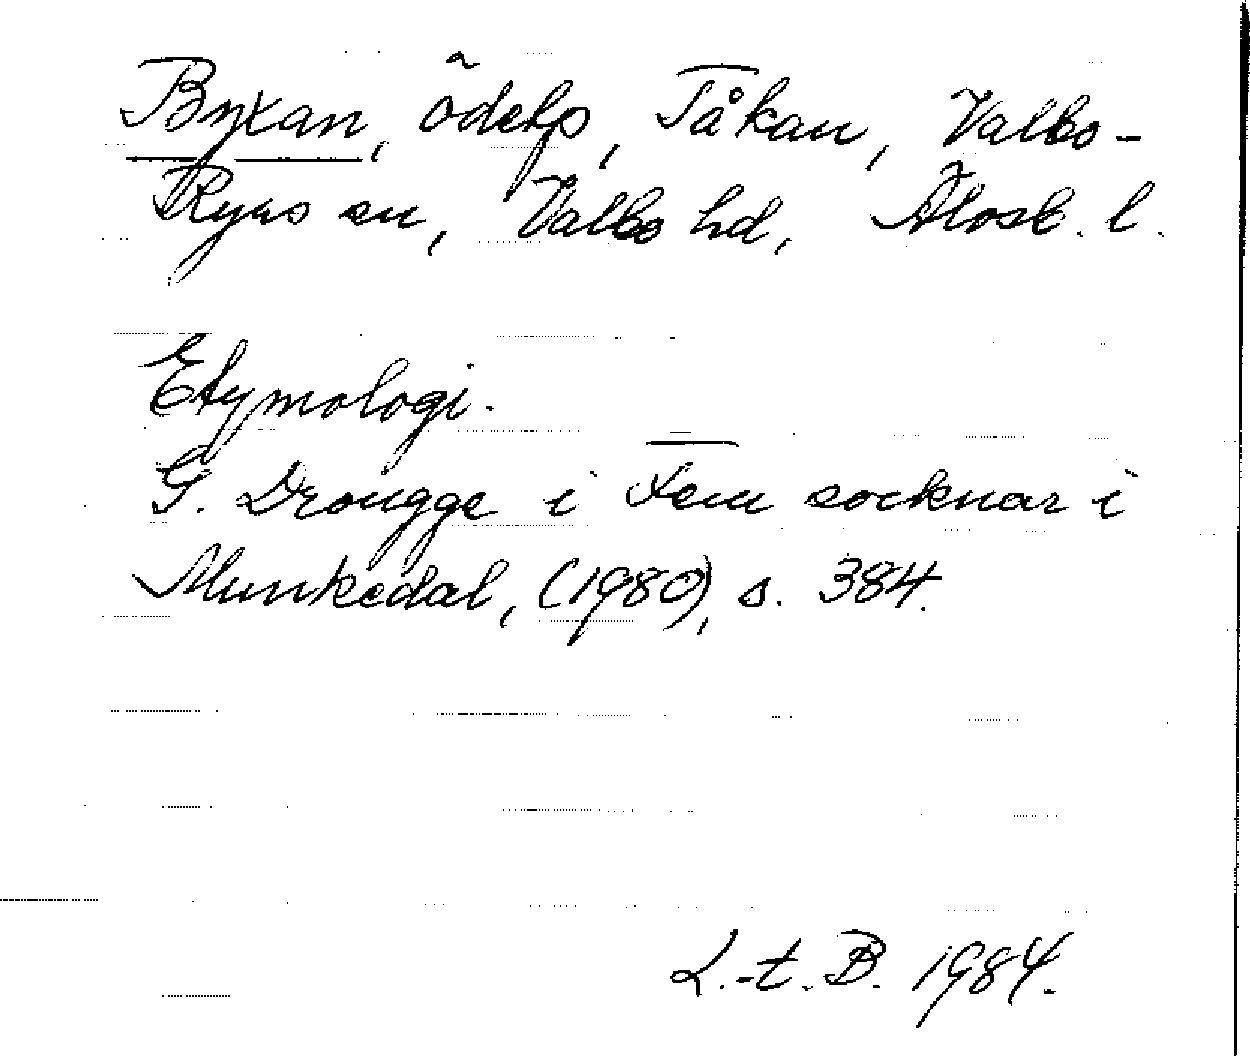 Byxan, ödelp, Tåkan, Valbo-
Ryrs sn, Valbo hd, Älvsb. l.
Etymologi.
G. Drougge i Fem socknar i
Munkedal, (1980), s. 384.
L.-t. B. 1984.